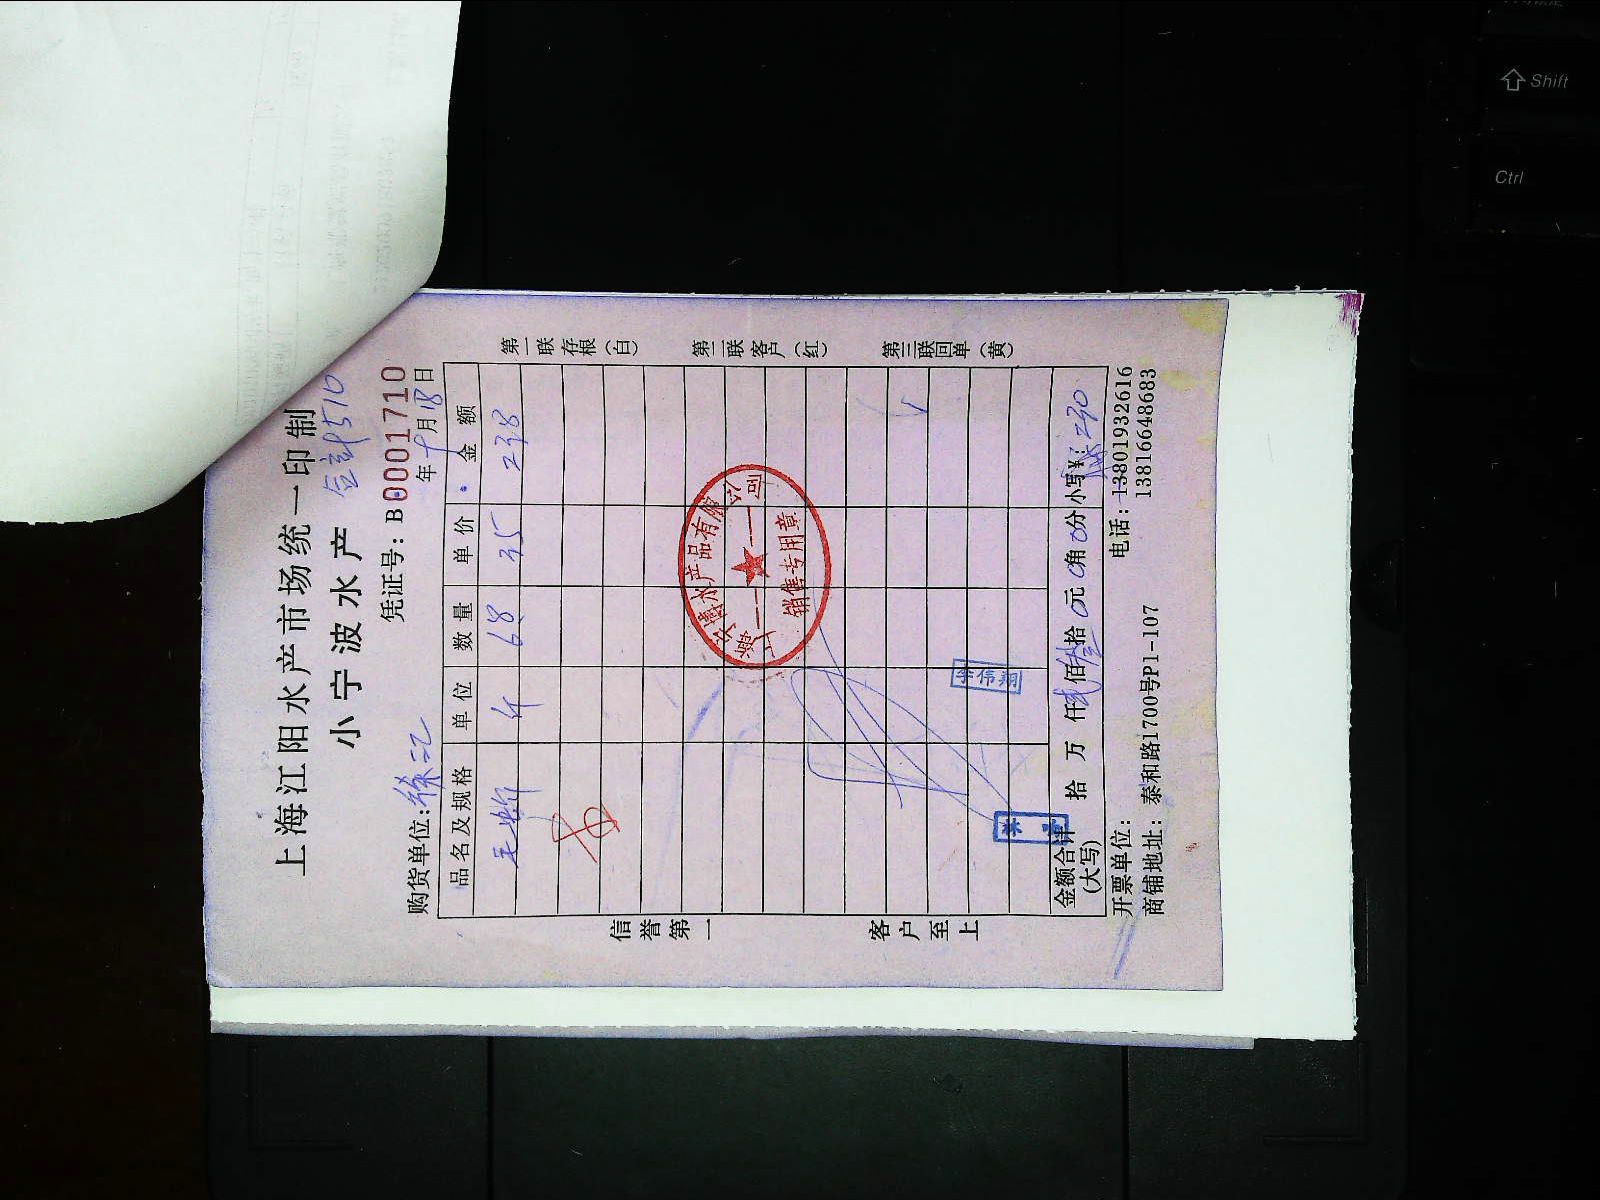 上海江阳水产市场统一印制
小宁波水产
510
凭证号：B0001710
购货单位：徐汇 年 十月18日
品名及规格 单位 数量 单价 金额
毛蚶 斤 6.8 35 238
第一联存根（白）
第二联客户（红）
第三联回单（黄）
信誉第一
客户至上
水产品有限公司
销售专用章
李伟翔
金额合计 拾 万 仟 贰佰 叁拾 0元 0角 0分 小写¥：230
(大写)
开票单位： 电话：13801932616
商铺地址：泰和路1700号P1-107 13816648683
Shift
Ctrl